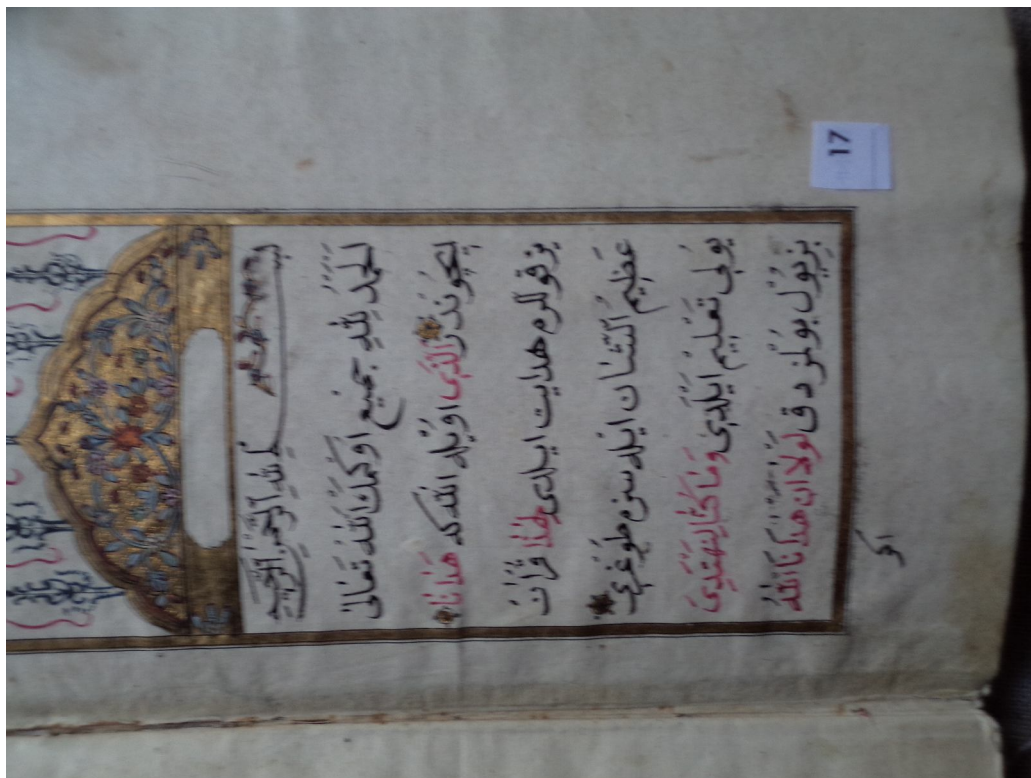 بسم الله الرحمن الرحيم
الحمد لله جميع اوكمك الله تعالى
ايچوندر الذى اويله الله كه هدانا
بز قوللرم هدايت ايلدى لهذا قرآن
عظيم الشان ايله سزه طوغرى
يولى تعليم ايلدى وما كنا لنهتدى
بز يول بولمزدق لولا ان هدانا الله
اكر
17